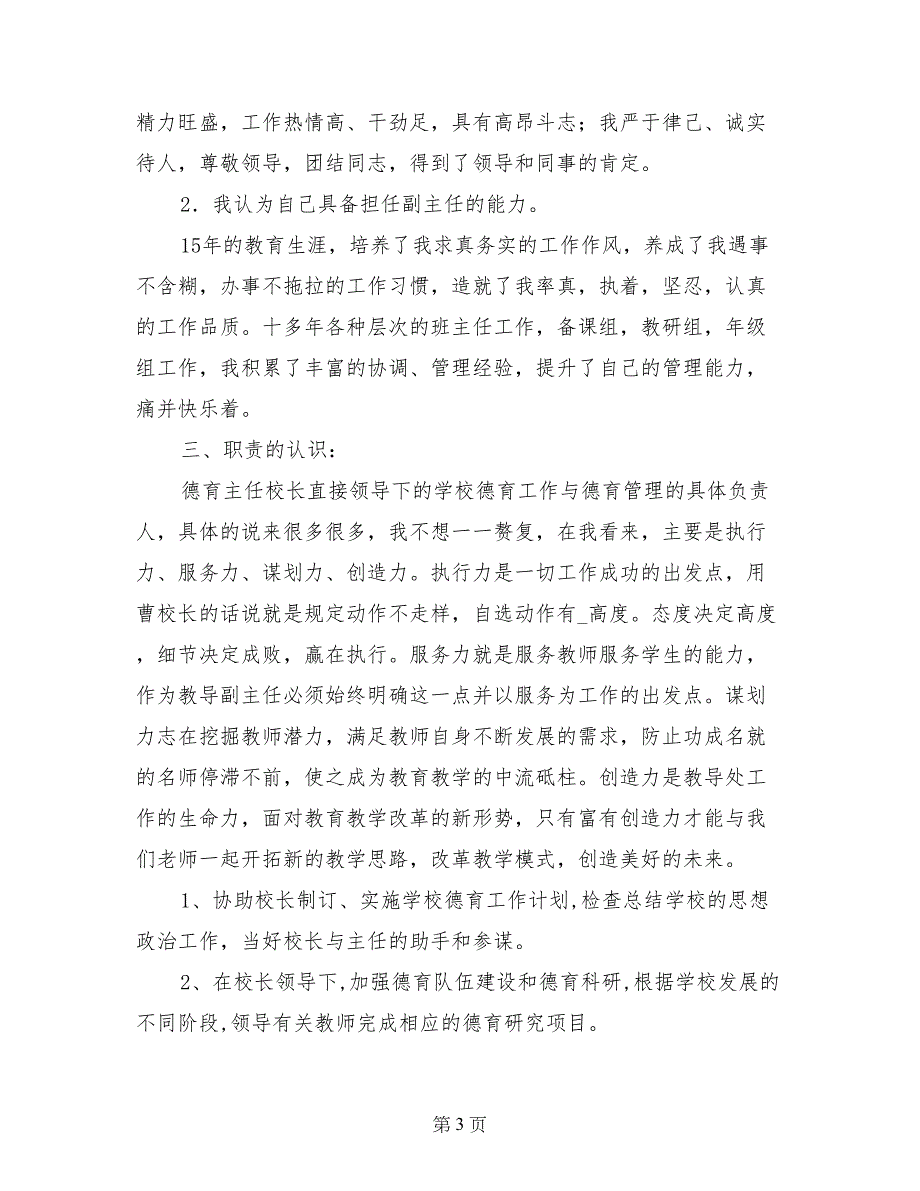 精力旺盛，工作热情高、干劲足，具有高昂斗志；我严于律己、诚实
待人，尊敬领导，团结同志，得到了领导和同事的肯定。
2．我认为自己具备担任副主任的能力。
15年的教育生涯，培养了我求真务实的工作作风，养成了我遇事
不含糊，办事不拖拉的工作习惯，造就了我率真，执着，坚忍，认真
的工作品质。十多年各种层次的班主任工作，备课组，教研组，年级
组工作，我积累了丰富的协调、管理经验，提升了自己的管理能力，
痛并快乐着。
三、职责的认识：
德育主任校长直接领导下的学校德育工作与德育管理的具体负责
人，具体的说来很多很多，我不想一一赘复，在我看来，主要是执行
力、服务力、谋划力、创造力。执行力是一切工作成功的出发点，用
曹校长的话说就是规定动作不走样，自选动作有_高度。态度决定高度
，细节决定成败，赢在执行。服务力就是服务教师服务学生的能力，
作为教导副主任必须始终明确这一点并以服务为工作的出发点。谋划
力志在挖掘教师潜力，满足教师自身不断发展的需求，防止功成名就
的名师停滞不前，使之成为教育教学的中流砥柱。创造力是教导处工
作的生命力，面对教育教学改革的新形势，只有富有创造力才能与我
们老师一起开拓新的教学思路，改革教学模式，创造美好的未来。
1、协助校长制订、实施学校德育工作计划,检查总结学校的思想
政治工作，当好校长与主任的助手和参谋。
2、在校长领导下,加强德育队伍建设和德育科研,根据学校发展的
不同阶段,领导有关教师完成相应的德育研究项目。
第 3 页